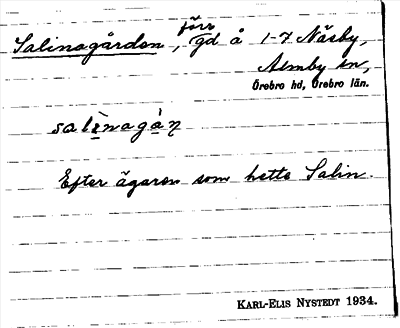 Salinagården, förr gd å 1-7 Näsby,
Almby sn,
Örebro hd, Örebro län.
salinagån
Efter ägaren som hette Salin.
KARL-ELIS NYSTEDT 1934.